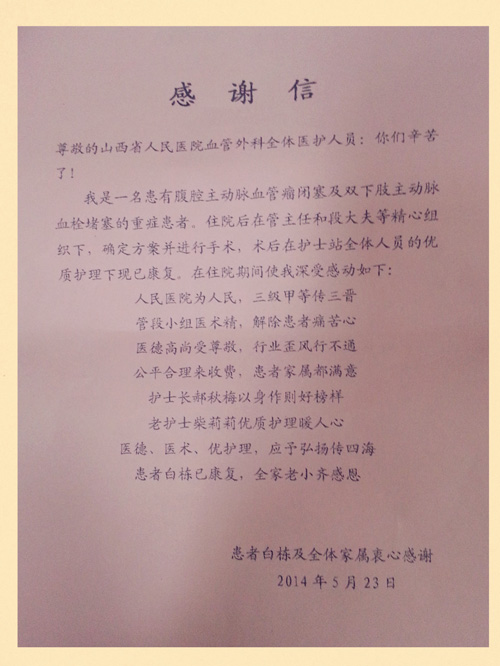 感谢信
尊敬的山西省人民医院血管外科全体医护人员：你们辛苦
了！
我是一名患有腹腔主动脉血管瘤闭塞及双下肢主动脉
血栓堵塞的重症患者。住院后在管主任和段大夫等精心组
织下，确定方案并进行手术，术后在护士站全体人员的优
质护理下现已康复。在住院期间使我深受感动如下：
人民医院为人民，三级甲等传三晋
管段小组医术精，解除患者痛苦心
医德高尚受尊敬，行业歪风行不通
公平合理来收费，患者家属都满意
护士长郝秋梅以身作则好榜样
老护士柴莉莉优质护理暖人心
医德、医术、优护理，应予弘扬传四海
患者白栋已康复，全家老小齐感恩
患者白栋及全体家属衷心感谢
2014年5月23日